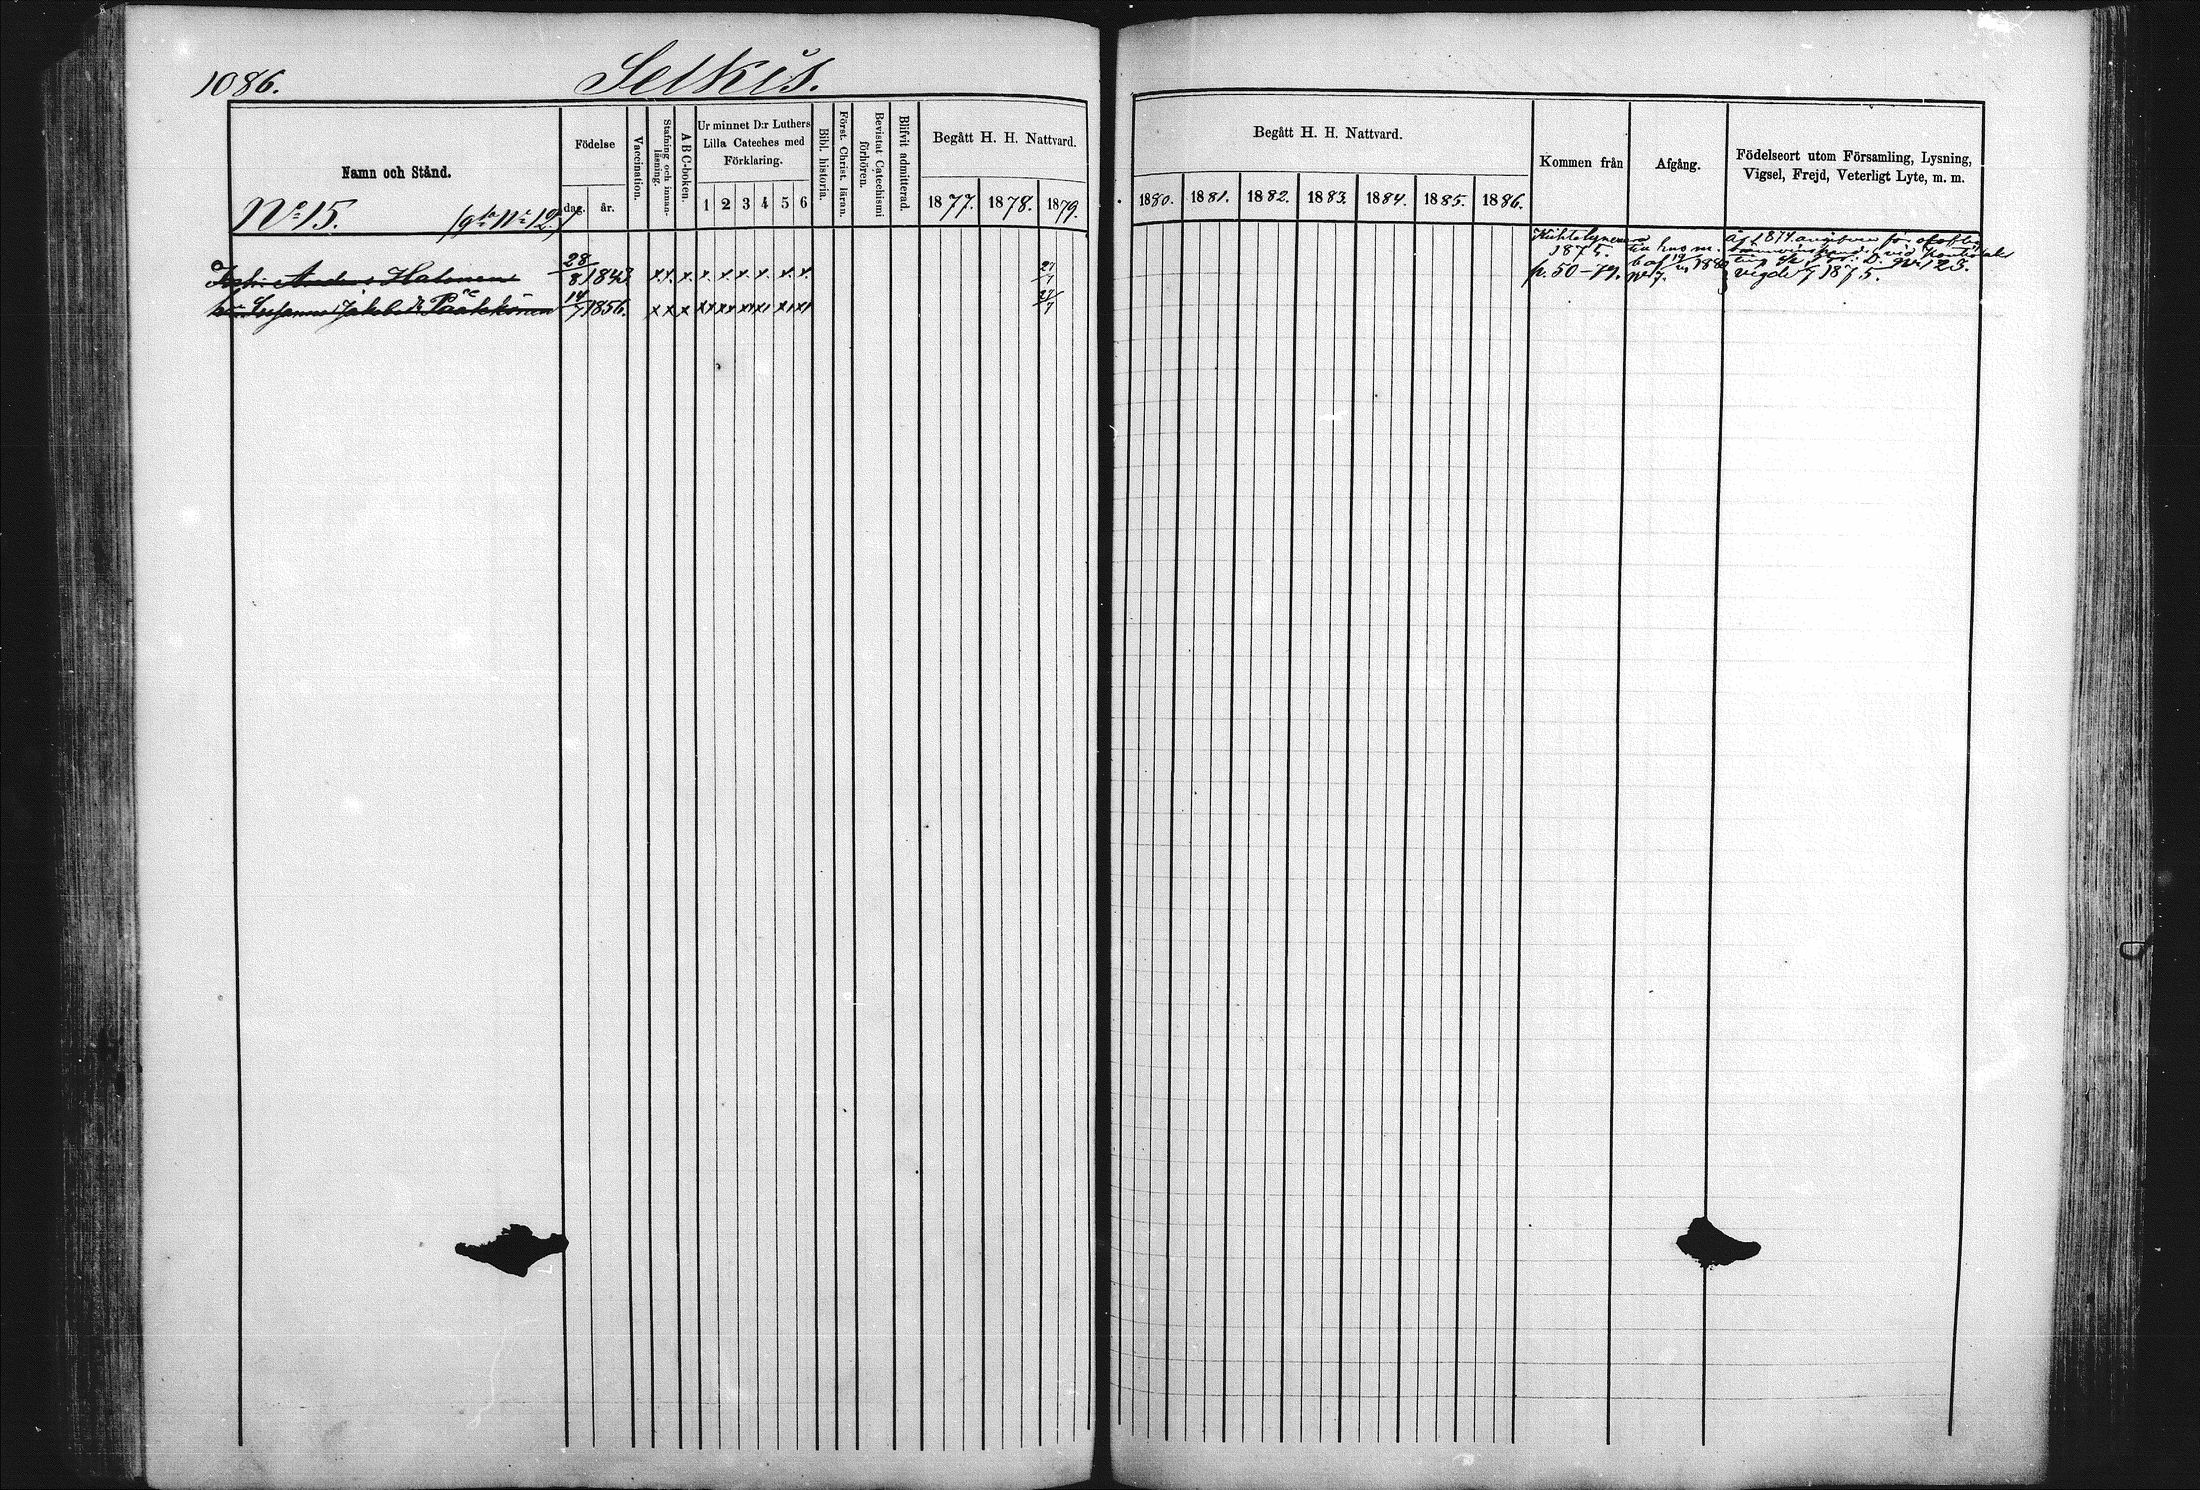 1086.
Selkis.
Namn och Stånd.
Födelse
dag.
år.
Vaccination.
Stafning och innanläsning.
ABC-boken.
Ur minnet D:r Luthers
Lilla Cateches med
Förklaring.
1 2 3 4 5 6
Bibl. historia.
Först. Christ. läran.
Bevistat Catechismi
förhören.
Blifvit admitterad.
Begått H. H. Nattvard.
1877. 1878. 1879.
Begått H. H. Nattvard.
1880. 1881. 1882. 1883. 1884. 1885. 1886.
Kommen från
Afgång.
Födelseort utom Församling, Lysning,
Vigsel, Frejd, Veterligt Lyte, m. m.
No 15.
No 12
Anders Halonen 28/8 1843 x x x x x x x x x 27/7
Susanna Jakobsdr Pääkkönen 14/7 1856. x x x xx xx xx xx 27/7
1875.
p. 50-79.
No 7.
1880
År 1874
för
vid
No 123.
vigde 1875.